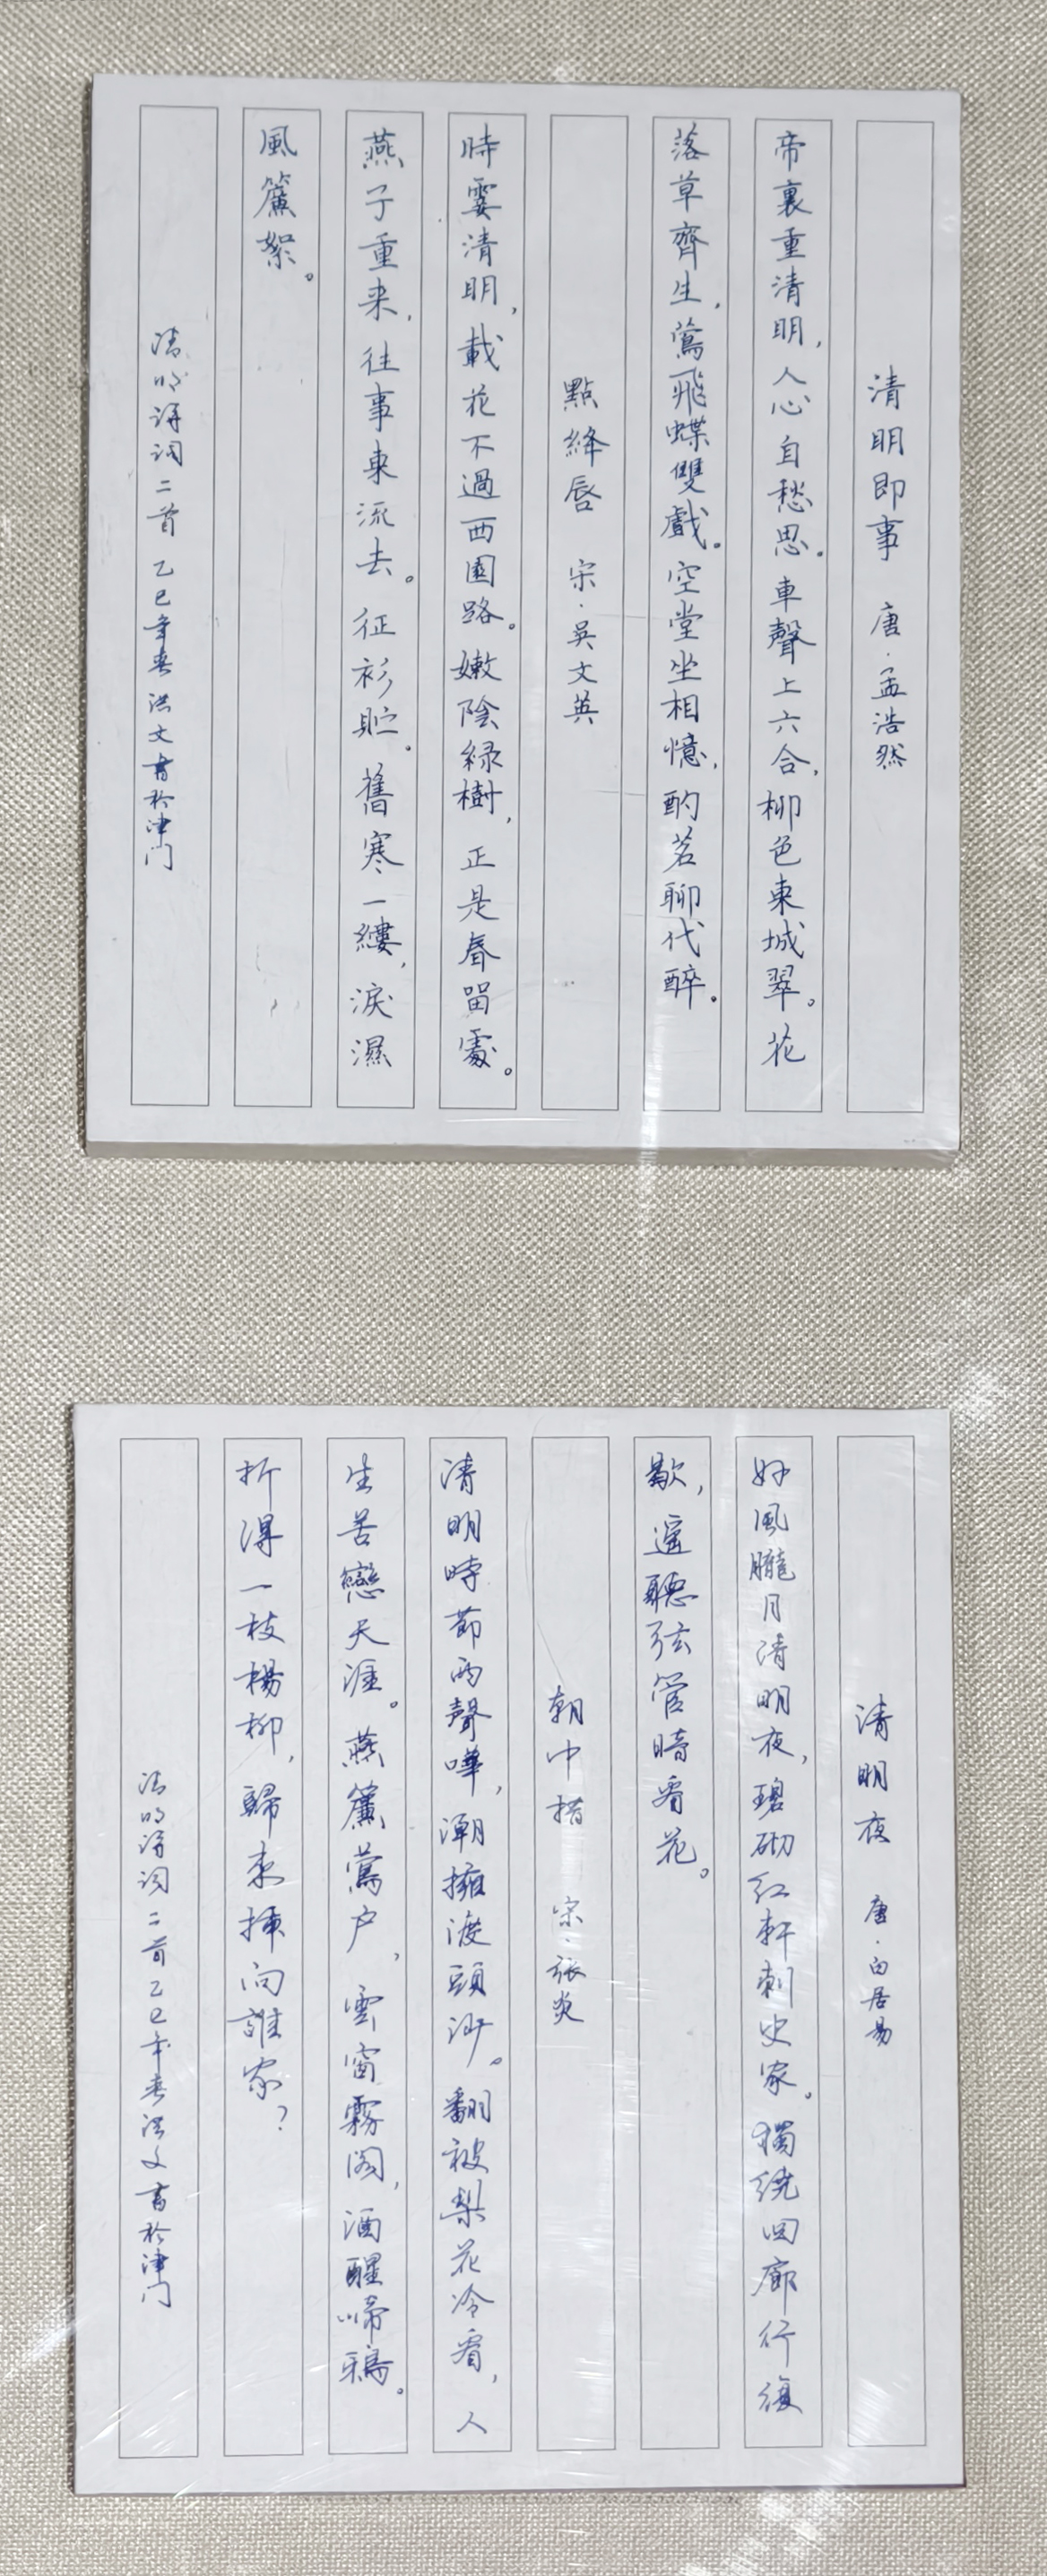 清明即事 唐·孟浩然
帝裏重清明，人心自愁思。車聲上六合，柳色東城翠。花
落草齊生，鶯飛蝶雙戲。空堂坐相憶，酌茗聊代醉。
點絳唇 宋·吳文英
時霎清明，載花不過西園路。嫩陰緑樹，正是春留處。
燕子重来，往事東流去。征衫貯。舊寒一縷，淚濕
風簾絮。
清明詩詞二首 乙巳年春洪文書於津门
清明夜 唐·白居易
好風朧月清明夜，碧砌红軒刺史家。獨绕回廊行復
歇，遥聽弦管暗看花。
朝中措 宋·張炎
清明時節雨聲嘩，潮擁渡頭沙。翻被梨花冷看，人
生苦戀天涯。燕簾鶯户，雲窗霧阁，酒醒啼鴉。
折得一枝楊柳，歸来插向誰家？
清明詩词二首乙巳年春洪文書於津门